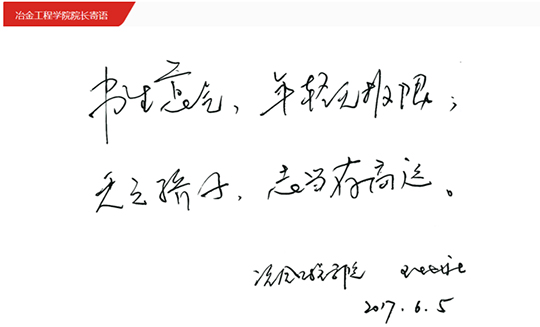 冶金工程学院院长寄语
书生意气，年轻无极限；
天之骄子，志当存高远。
冶金工程学院
2017.6.5